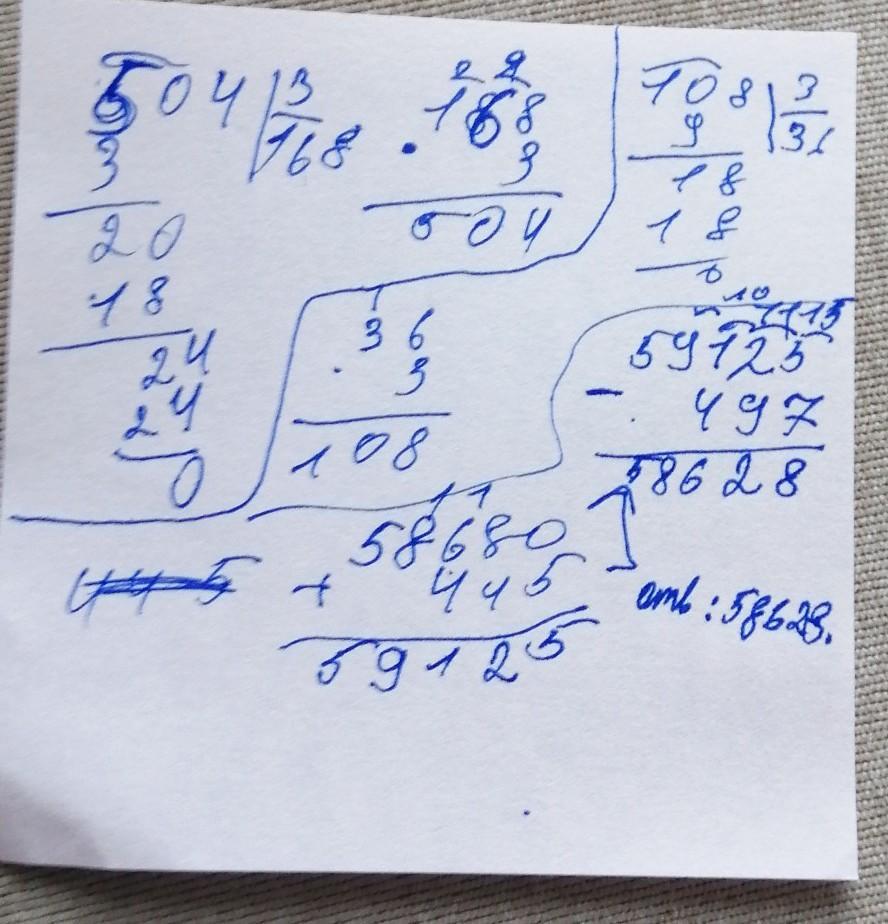 504 3
3 168
20
18
24
24
0
2 2
168
· 3
504
108 3
9 36
18
18
0
1
36
· 3
108
10 11 15
59125
- 497
58628
11
58680
+ 445
59125
отв: 58628.